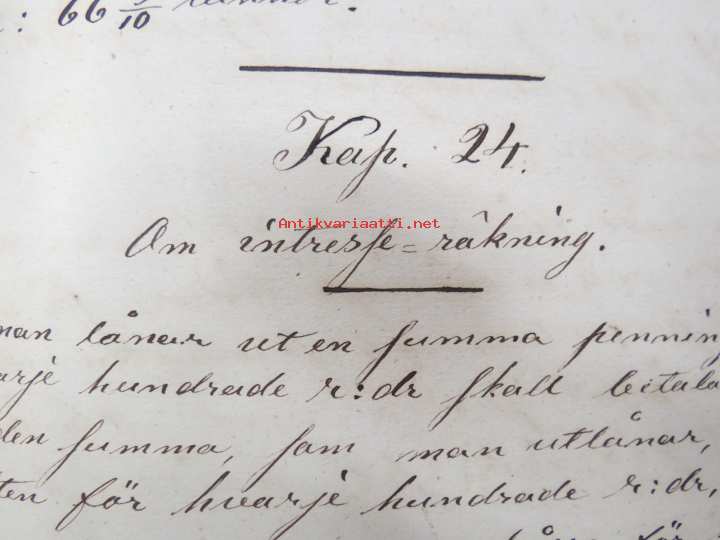 : 66 5/10
Kap. 24.
Antikvariaatti.net
Om intresse=räkning.
man lånar ut en summa penning
arje hundrade r:dr skall betala
den summa, som man utlånar,
ten för hvarje hundrade r:dr,
för